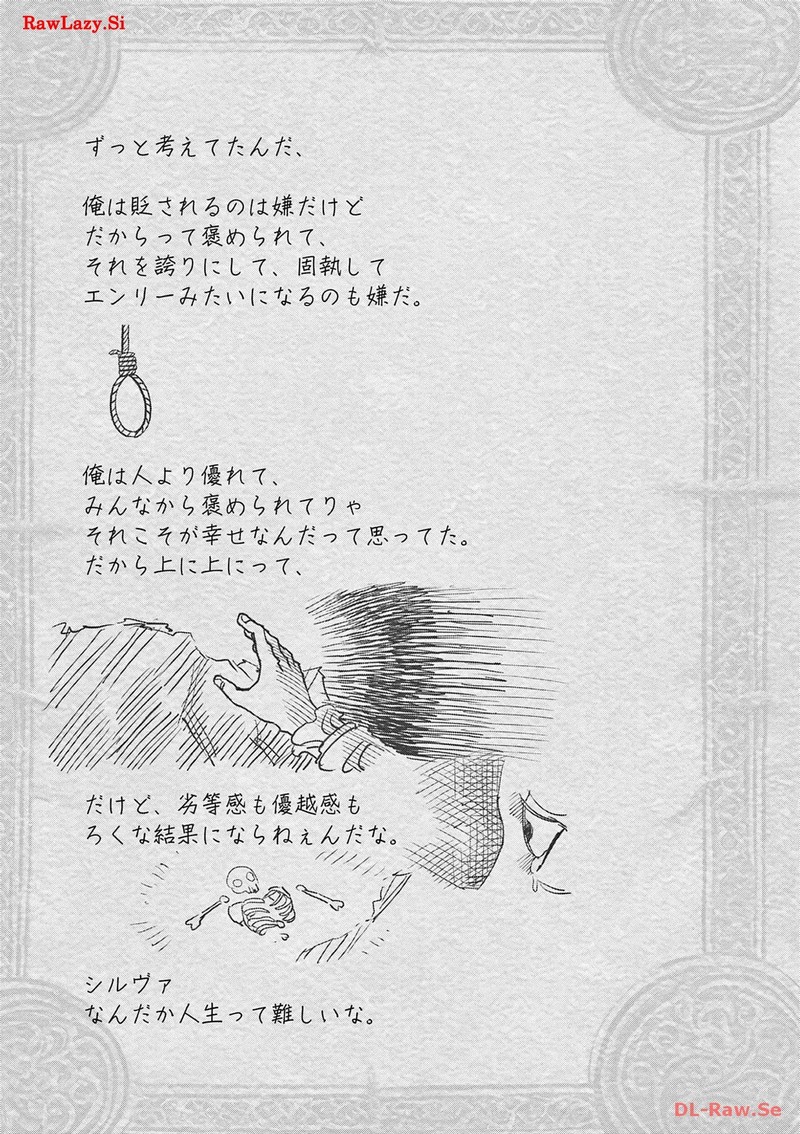 RawLazy.Si
ずっと考えてたんだ、
俺は貶されるのは嫌だけど
だからって褒められて、
それを誇りにして、固執して
エンリーみたいになるのも嫌だ。
俺は人より優れて、
みんなから褒められてりゃ
それこそが幸せなんだって思ってた。
だから上に上にって、
だけど、劣等感も優越感も
ろくな結果にならねぇんだな。
シルヴァ
なんだか人生って難しいな。
DL-Raw.Se